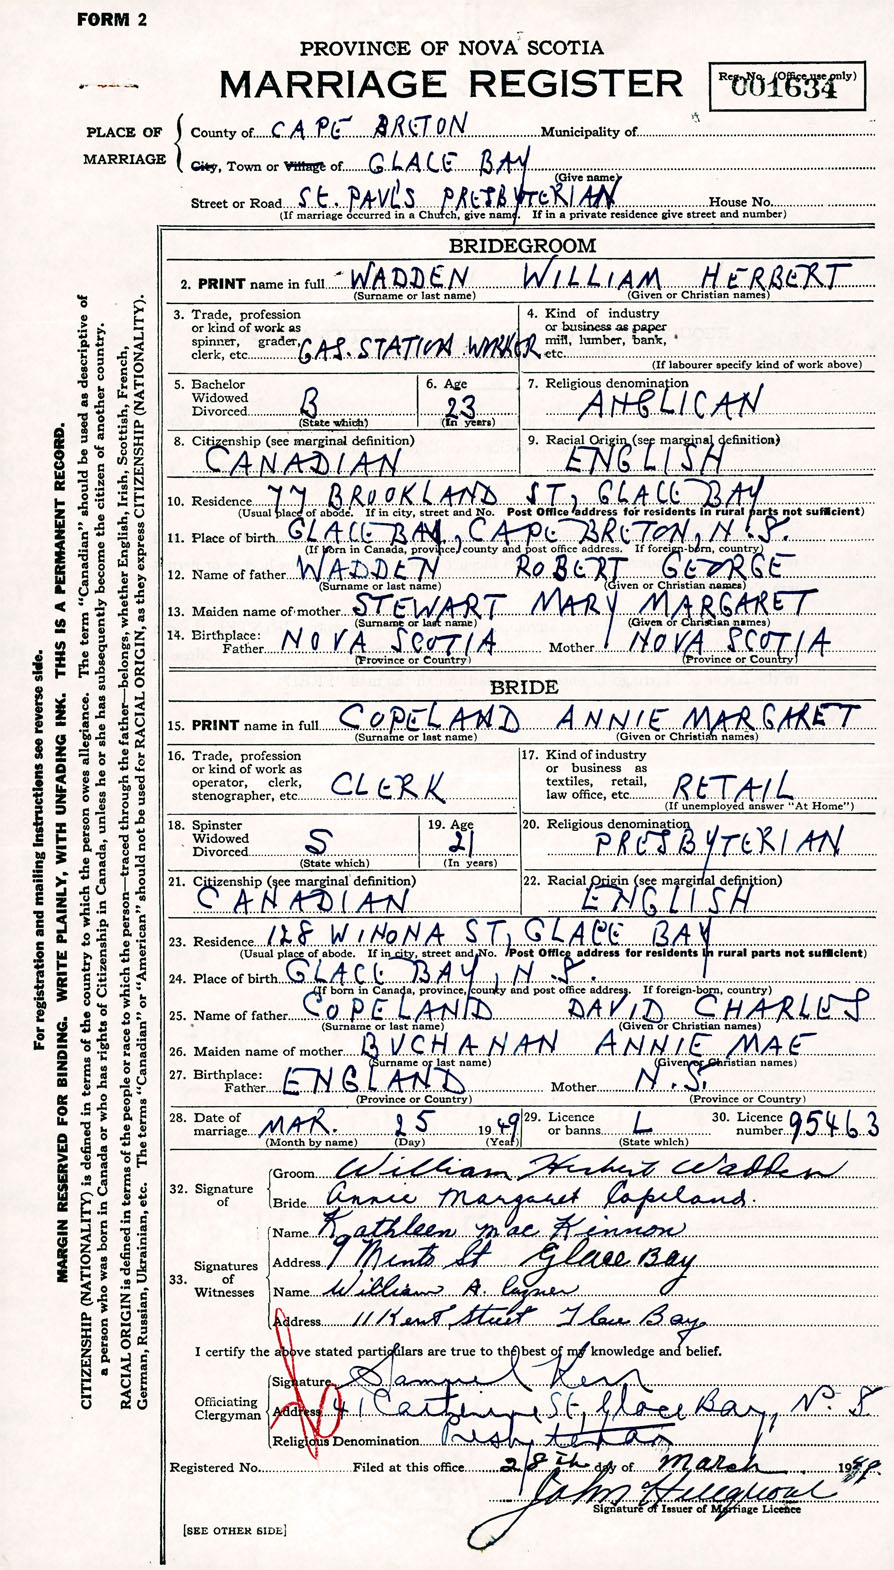 FORM 2
PROVINCE OF NOVA SCOTIA
MARRIAGE REGISTER
Reg. No. (Office use only)
001634
PLACE OF MARRIAGE
County of CAPE BRETON Municipality of
City, Town or Village of GLACE BAY
(Give name)
Street or Road ST. PAUL'S PRESBYTERIAN House No.
(If marriage occurred in a Church, give name. If in a private residence give street and number)
BRIDEGROOM
2. PRINT name in full WADDEN WILLIAM HERBERT
(Surname or last name) (Given or Christian names)
3. Trade, profession or kind of work as spinner, grader, clerk, etc. GAS. STATION WORKER
4. Kind of industry or business as paper mill, lumber, bank, etc.
(If labourer specify kind of work above)
5. Bachelor Widowed Divorced B
(State which)
6. Age 23
(In years)
7. Religious denomination ANGLICAN
8. Citizenship (see marginal definition) CANADIAN
9. Racial Origin (see marginal definition) ENGLISH
10. Residence 77 BROOKLAND ST, GLACE BAY
(Usual place of abode. If in city, street and No. Post Office address for residents in rural parts not sufficient)
11. Place of birth GLACE BAY, CAPE BRETON, N.S.
(If born in Canada, province, county and post office address. If foreign-born, country)
12. Name of father WADDEN ROBERT GEORGE
(Surname or last name) (Given or Christian names)
13. Maiden name of mother STEWART MARY MARGARET
(Surname or last name) (Given or Christian names)
14. Birthplace: Father NOVA SCOTIA Mother NOVA SCOTIA
(Province or Country) (Province or Country)
BRIDE
15. PRINT name in full COPELAND ANNIE MARGARET
(Surname or last name) (Given or Christian names)
16. Trade, profession or kind of work as operator, clerk, stenographer, etc. CLERK
17. Kind of industry or business as textiles, retail, law office, etc. RETAIL
(If unemployed answer "At Home")
18. Spinster Widowed Divorced S
(State which)
19. Age 21
(In years)
20. Religious denomination PRESBYTERIAN
21. Citizenship (see marginal definition) CANADIAN
22. Racial Origin (see marginal definition) ENGLISH
23. Residence 128 WINONA ST, GLACE BAY
(Usual place of abode. If in city, street and No. Post Office address for residents in rural parts not sufficient)
24. Place of birth GLACE BAY, N.S.
(If born in Canada, province, county and post office address. If foreign-born, country)
25. Name of father COPELAND DAVID CHARLES
(Surname or last name) (Given or Christian names)
26. Maiden name of mother BUCHANAN ANNIE MAE
(Surname or last name) (Given or Christian names)
27. Birthplace: Father ENGLAND Mother N.S.
(Province or Country) (Province or Country)
28. Date of marriage MAR. 25 1949
(Month by name) (Day) (Year)
29. Licence or banns L
(State which)
30. Licence number 95463
32. Signature of
Groom William Herbert Wadden
Bride Annie Margaret Copeland.
33. Signatures of Witnesses
Name Kathleen Mac Kinnon
Address 9 Minto St Glace Bay
Name William A.
Address 11 Kent Street Glace Bay
I certify the above stated particulars are true to the best of my knowledge and belief.
Officiating Clergyman
Signature Samuel Kerr
Address 41 Catherine St, Glace Bay, N.S
Religious Denomination Presbyterian
Registered No. Filed at this office 28th day of March 1949.
John
Signature of Issuer of Marriage Licence
[SEE OTHER SIDE]
For registration and mailing instructions see reverse side.
MARGIN RESERVED FOR BINDING. WRITE PLAINLY, WITH UNFADING INK. THIS IS A PERMANENT RECORD.
CITIZENSHIP (NATIONALITY) is defined in terms of the country to which the person owes allegiance. The term "Canadian" should be used as descriptive of
a person who was born in Canada or who has rights of Citizenship in Canada, unless he or she has subsequently become the citizen of another country.
RACIAL ORIGIN is defined in terms of the people or race to which the person—traced through the father—belongs, whether English, Irish, Scottish, French,
German, Russian, Ukrainian, etc. The terms "Canadian" or "American" should not be used for RACIAL ORIGIN, as they express CITIZENSHIP (NATIONALITY).